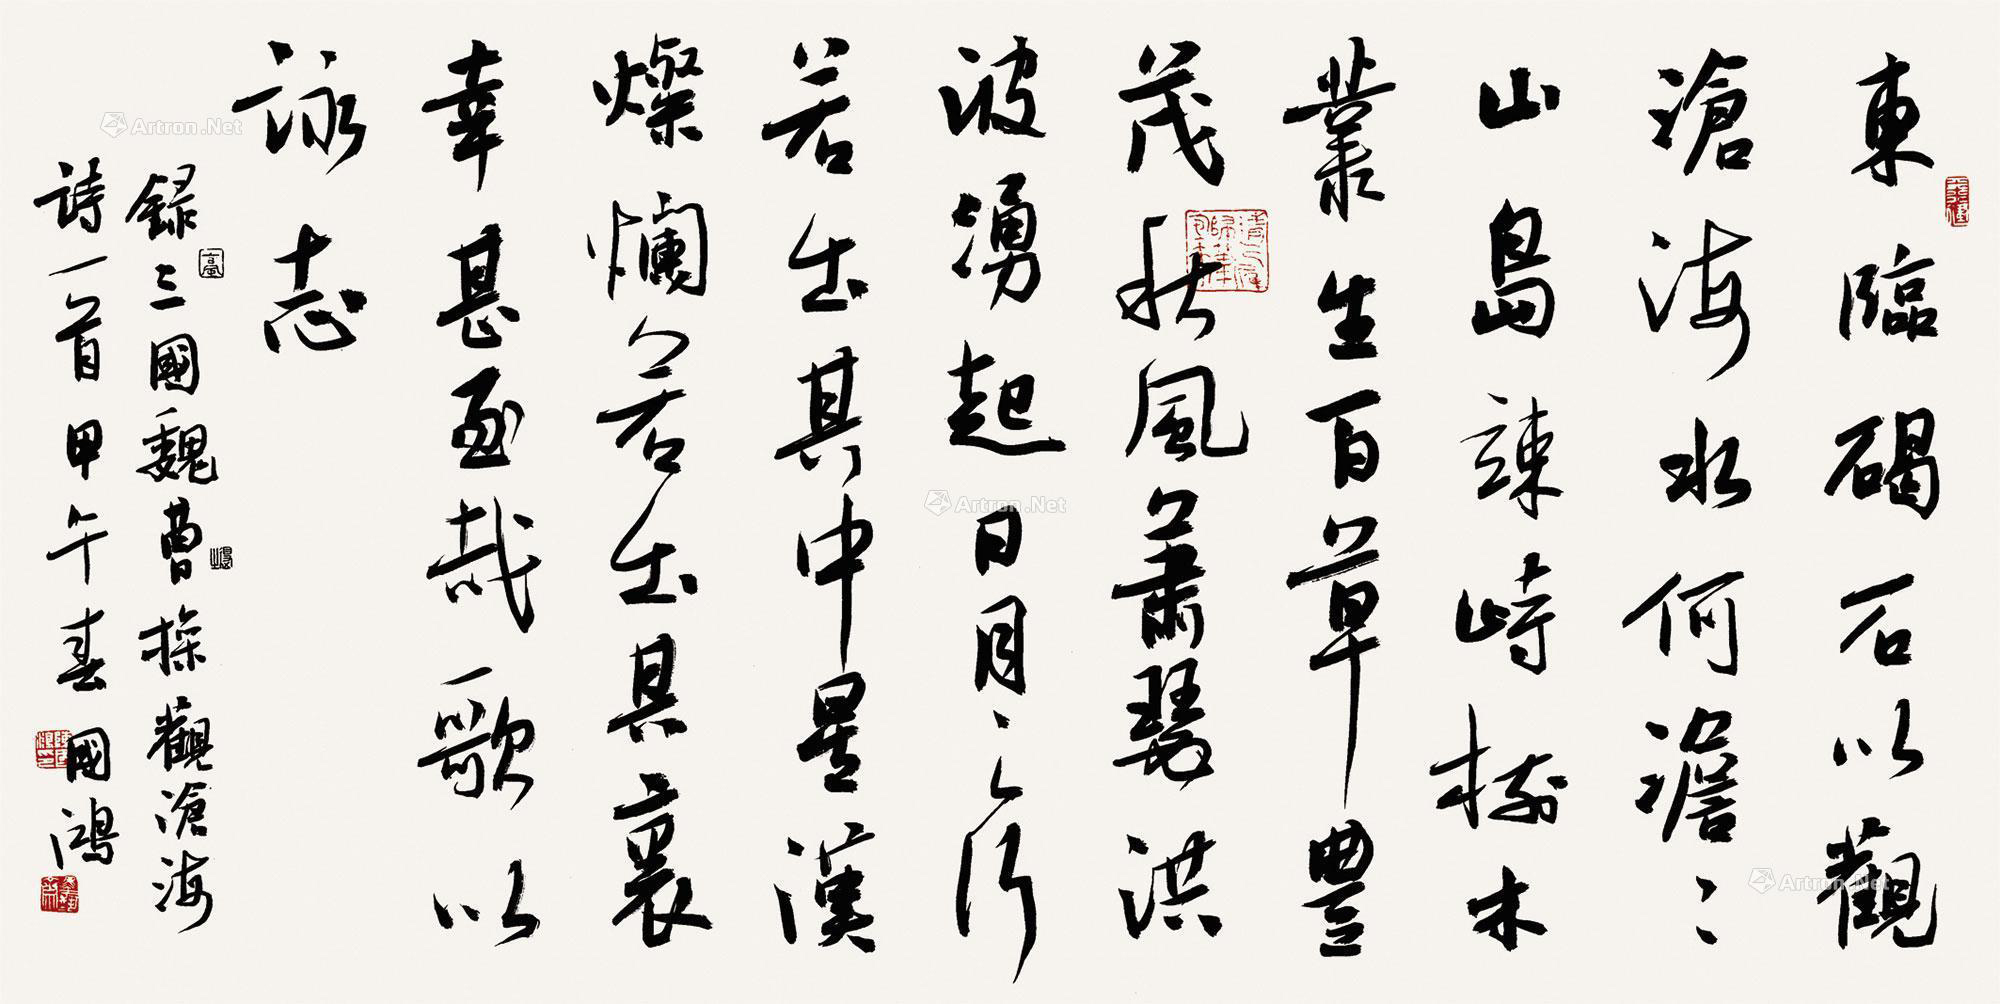 東臨碣石以觀
滄海水何澹〻
山島竦峙樹木
叢生百草豐
茂秋風蕭瑟洪
波湧起日月之行
若出其中星漢
燦爛若出其裏
幸甚至哉歌以
詠志
録三國魏曹操觀滄海
詩一首甲午春國鴻
Artron.Net
Artron.Net
Artron.Net